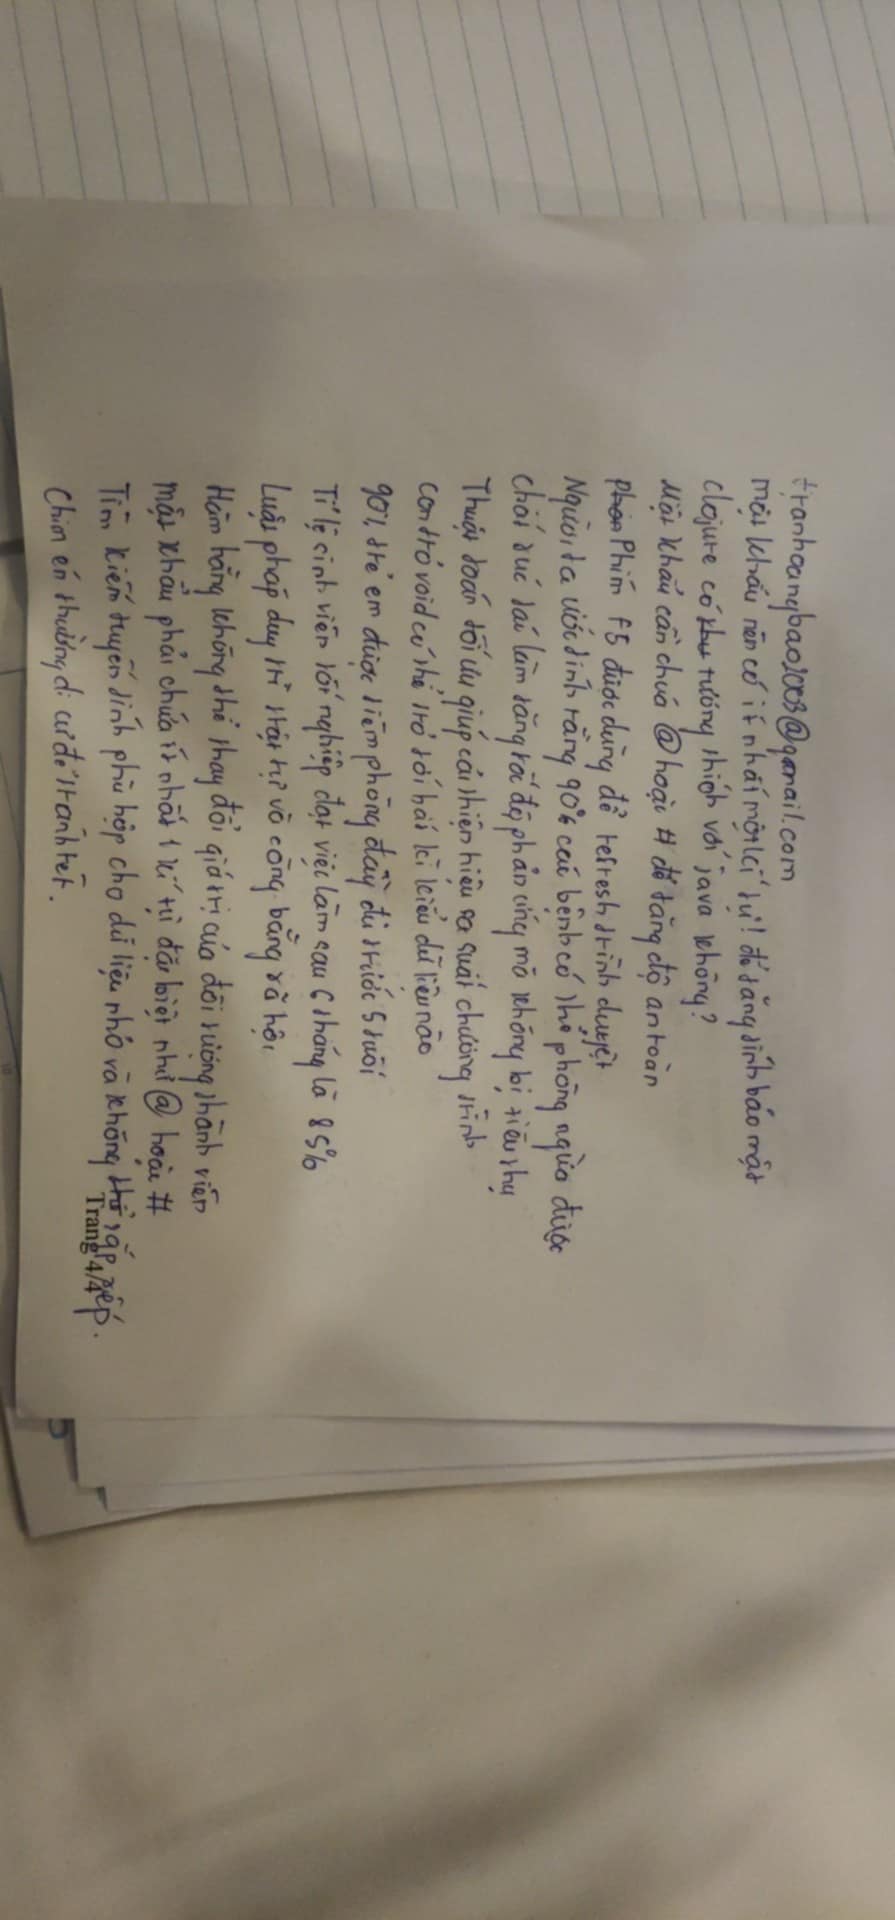 tranhoangbao2003@gmail.com
mật khẩu nên có ít nhất một kí tự! để tăng tính bảo mật
clojure có tương thích với java không?
Mật khẩu cần chứa @ hoặc # để tăng độ an toàn
Phím F5 được dùng để refresh trình duyệt
Người ta ước tính rằng 90% các bệnh có thể phòng ngừa được
chất xúc tác làm tăng tốc độ phản ứng mà không bị tiêu thụ
Thuật toán tối ưu giúp cải thiện hiệu suất chương trình
con trỏ void có thể trỏ tới bất kì kiểu dữ liệu nào
90% trẻ em được tiêm phòng đầy đủ trước 5 tuổi
Tỉ lệ sinh viên tốt nghiệp đạt việc làm sau 6 tháng là 85%
Luật pháp duy trì trật tự và công bằng xã hội
Hàm hằng không thể thay đổi giá trị của đối tượng thành viên
mật khẩu phải chứa ít nhất 1 kí tự đặc biệt như @ hoặc #
Tìm kiếm tuyến tính phù hợp cho dữ liệu nhỏ và không sắp xếp.
Trang 4/4
Chim én thường di cư để tránh rét.